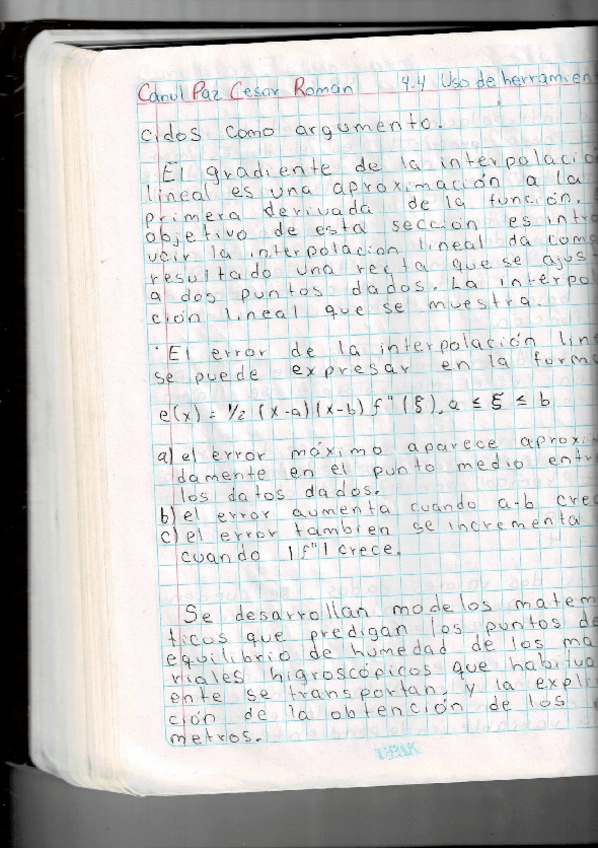 Canul Paz Cesar Román 4.4 Uso de herramien
cidos como argumento.
El gradiente de la interpolació
lineal es una aproximación a la
primera derivada de la función.
objetivo de esta sección es intro
ucir la interpolacion lineal da como
resultado una recta que se ajus
a dos puntos dados. La interpol
ción lineal que se muestra.
El error de la interpolación line
se puede expresar en la forma
e(x) = 1/2 (x-a)(x-b) f"(ξ), a ≤ ξ ≤ b
a) el error máximo aparece aproxi
damente en el punto medio entr
los datos dados.
b) el error aumenta cuando a-b crec
c) el error tambien se incrementa
cuando |f"| crece.
Se desarrollan modelos matem
ticos que predigan los puntos de
equilibrio de humedad de los ma
riales higroscópicos que habitua
ente se transportan, y la expli
ción de la obtención de los
metros.